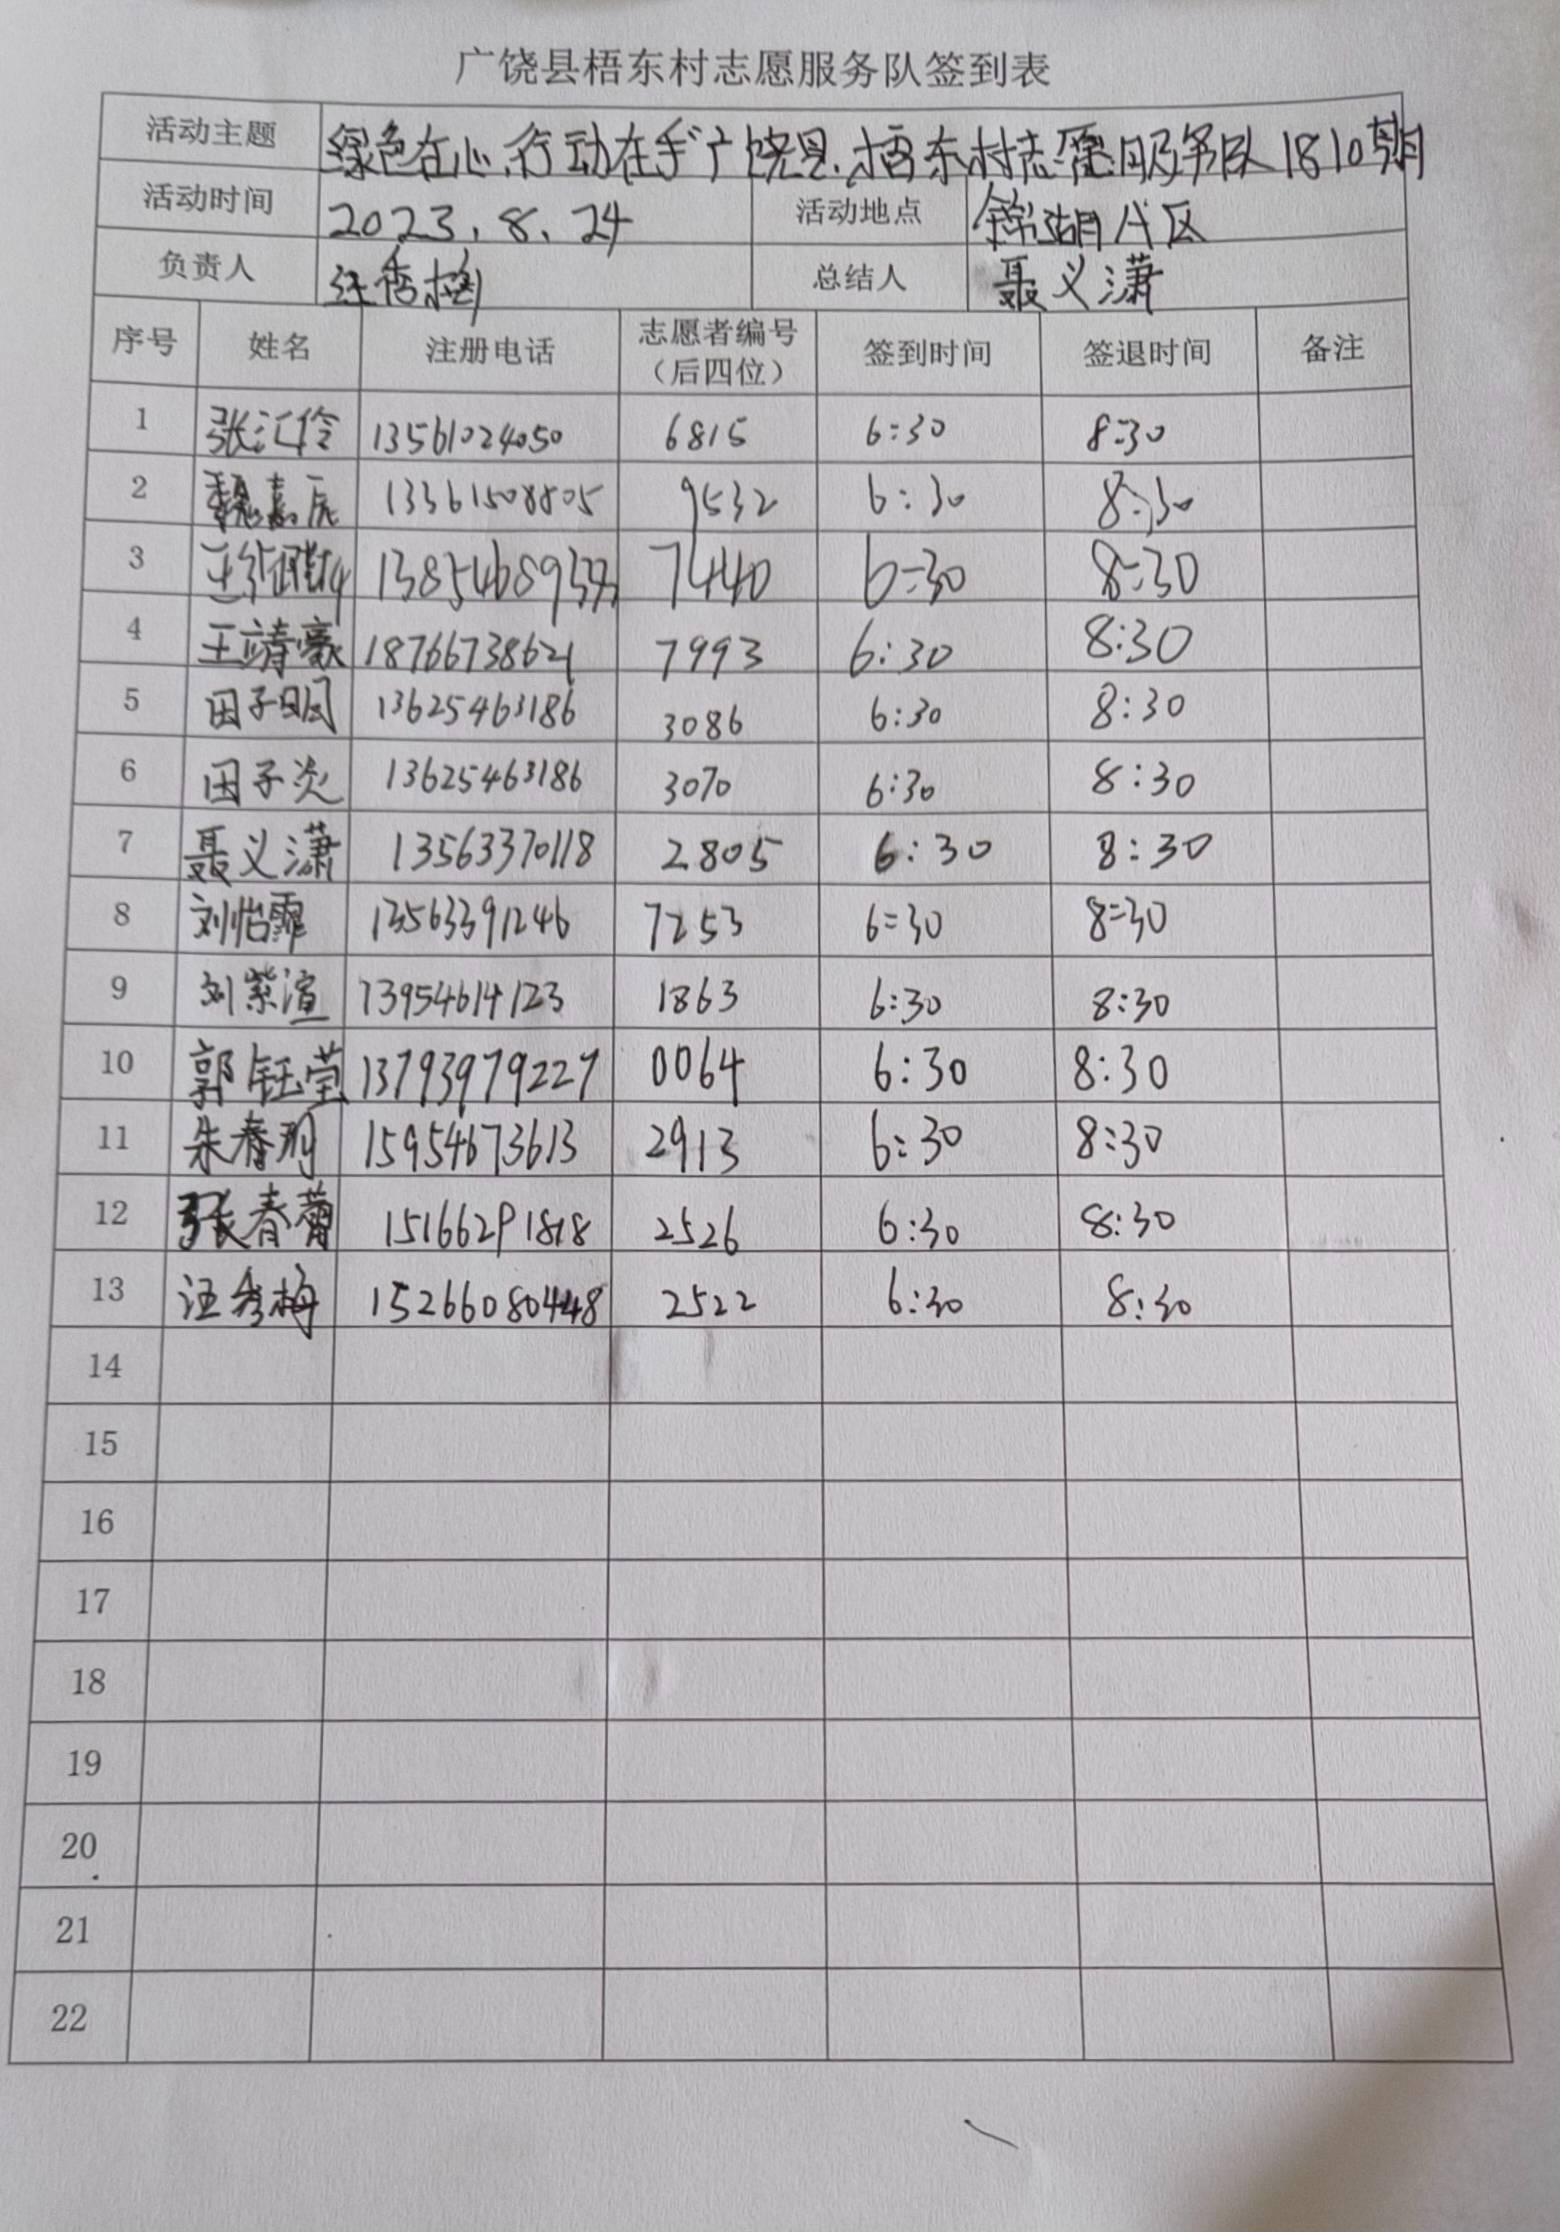 广饶县梧东村志愿服务队签到表
活动主题 绿色在心,行动在手"广饶县梧东村志愿服务队1810期
活动时间 2023.8.24 活动地点 锦湖片区
负责人 汪秀梅 总结人 聂义潇
序号 姓名 注册电话 志愿者编号（后四位） 签到时间 签退时间 备注
1 张汇伶 13561024050 6815 6:30 8:30
2 魏嘉辰 13361508805 9532 6:30 8:30
3 7440 6:30 8:30
4 王靖豪 18766738621 7993 6:30 8:30
5 田子明 13625463186 3086 6:30 8:30
6 田子炎 13625463186 3070 6:30 8:30
7 聂义潇 13563370118 2805 6:30 8:30
8 刘怡霏 13563391246 7253 6:30 8:30
9 刘紫渲 13954614123 1863 6:30 8:30
10 郭钰莹 13793979227 0064 6:30 8:30
11 朱春玥 15954673613 2913 6:30 8:30
12 张春蕾 15166291818 2526 6:30 8:30
13 汪秀梅 15266080448 2522 6:30 8:30
14
15
16
17
18
19
20
21
22